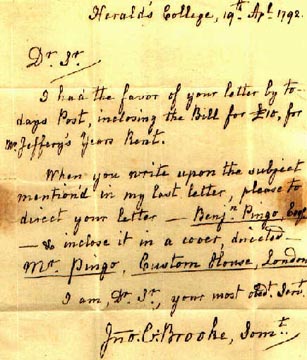 Herald's College, 19th. Apl. 1792.
Dr. Sr.
I had the favor of your letter by to-
days Post, inclosing the Bill for £10, for
Mr Jeffery's Years Rent.
When you write upon the subject
mention'd in my last letter, please to
direct your letter — Benjn. Pingo, Esqr
— & inclose it in a cover, directed —
Mr. Pingo, Custom House, London
I am, Dr. Sr, your most obedt. Servt.
Jno. C. Brooke, Somt.